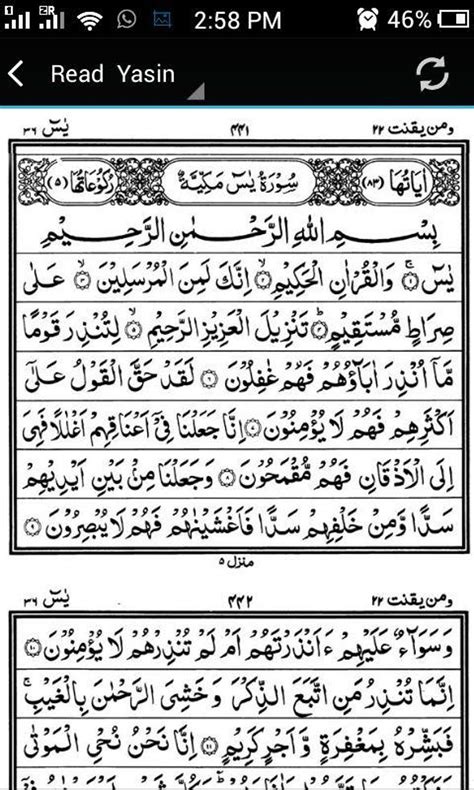 2:58 PM 46%
Read Yasin
ومن يقنت ٢٢ ٤٤١ يٰسٓ ٣٦
اٰيَاتُهَا (٨٣) سُوْرَةُ يٰسٓ مَكِّيَّةٌ رُكُوْعَاتُهَا (٥)
بِسْمِ اللهِ الرَّحْمٰنِ الرَّحِيْمِ
يٰسٓ ۚ﴿١﴾ وَالْقُرْاٰنِ الْحَكِيْمِ ۙ﴿٢﴾ اِنَّكَ لَمِنَ الْمُرْسَلِيْنَ ۙ﴿٣﴾ عَلٰى
صِرَاطٍ مُّسْتَقِيْمٍ ؕ﴿٤﴾ تَنْزِيْلَ الْعَزِيْزِ الرَّحِيْمِ ۙ﴿٥﴾ لِتُنْذِرَ قَوْمًا
مَّاۤ اُنْذِرَ اٰبَآؤُهُمْ فَهُمْ غٰفِلُوْنَ ﴿٦﴾ لَقَدْ حَقَّ الْقَوْلُ عَلٰۤى
اَكْثَرِهِمْ فَهُمْ لَا يُؤْمِنُوْنَ ﴿٧﴾ اِنَّا جَعَلْنَا فِيْۤ اَعْنَاقِهِمْ اَغْلٰلًا فَهِيَ
اِلَى الْاَذْقَانِ فَهُمْ مُّقْمَحُوْنَ ﴿٨﴾ وَجَعَلْنَا مِنْۢ بَيْنِ اَيْدِيْهِمْ
سَدًّا وَّمِنْ خَلْفِهِمْ سَدًّا فَاَغْشَيْنٰهُمْ فَهُمْ لَا يُبْصِرُوْنَ ﴿٩﴾
منزل ٥
ومن يقنت ٢٢ ٤٤٢ يٰسٓ ٣٦
وَسَوَآءٌ عَلَيْهِمْ ءَاَنْذَرْتَهُمْ اَمْ لَمْ تُنْذِرْهُمْ لَا يُؤْمِنُوْنَ ﴿١٠﴾
اِنَّمَا تُنْذِرُ مَنِ اتَّبَعَ الذِّكْرَ وَخَشِيَ الرَّحْمٰنَ بِالْغَيْبِ ۚ
فَبَشِّرْهُ بِمَغْفِرَةٍ وَّاَجْرٍ كَرِيْمٍ ﴿١١﴾ اِنَّا نَحْنُ نُحْيِ الْمَوْتٰى